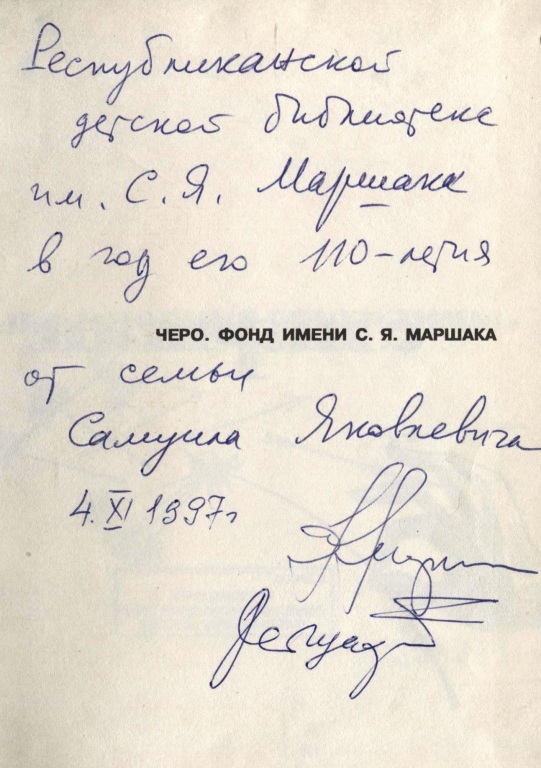 Республиканской
детской библиотеке
им. С. Я. Маршака
в год его 110-летия
ЧЕРО. ФОНД ИМЕНИ С. Я. МАРШАКА
от семьи
Самуила Яковлевича
4. XI 1997г